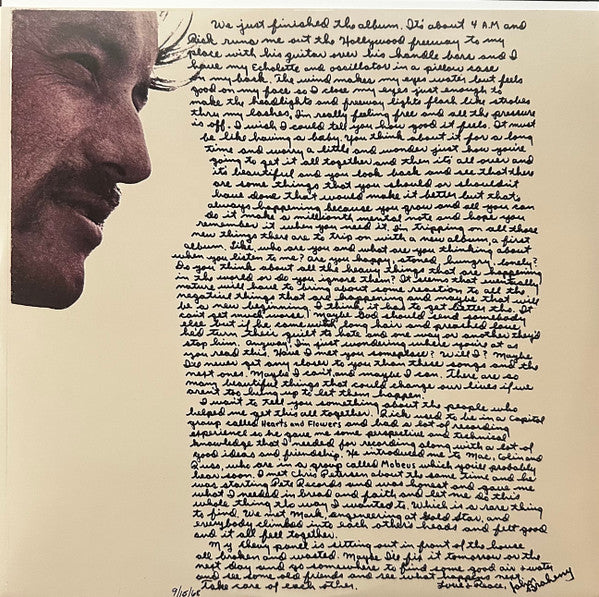 We just finished the album. It's about 4 AM and
Rick runs me out the Hollywood freeway to my
place with his guitar over his handle bars and I
have my Echolette and oscillator in a pillow case
on my back. The wind makes my eyes water but feels
good on my face so I close my eyes just enough to
make the headlights and freeway lights flash like strobes
thru my lashes, I'm really feeling free and all the pressure
is off. I wish I could tell you how good it feels. It must
be like having a baby. You think about it for a long
time and worry a little and wonder just how you're
going to get it all together and then it's all over and
it's beautiful and you look back and see that there
are some things that you should or shouldn't
have done that would make it better but that's
always happening because you grow and all you can
do is make a millionth mental note and hope you
remember it when you need it. I'm tripping on all those
new things there are to trip on with a new album, a first
album. Like, who are you and what are you thinking about
when you listen to me? are you happy, stoned, hungry, lonely?
Do you think about all the heavy things that are happening
in the world or do you ignore them? It seems that eventually
nature will have to bring about some reaction to all the
negative things that are happening and maybe that will
be a new beginning. I think it has to get better tho. It
can't get much worse! Maybe God should send somebody
else but if he came with long hair and preached love
he'd turn their guilt to hate and one way or another they'd
stop him. Anyway, I'm just wondering where you're at as
you read this. Have I met you someplace? Will I? Maybe
I'll never get any closer to you than these songs and the
next ones. Maybe I can't and maybe I can. There are so
many beautiful things that could change our lives if we
aren't too hung up to let them happen.
I want to tell you something about the people who
helped me get this all together. Rick used to be in a Capitol
group called Hearts and Flowers and had a lot of recording
experience so he gave me some perspective and technical
knowledge that I needed for recording along with a lot of
good ideas and friendship. He introduced me to Mac, Colin and
Russ, who are in a group called Mobeus which you'll probably
hear soon. I met Chris Peterson about the same time and he
was starting Pete Records and was honest and gave me
what I needed in bread and faith and let me do this
whole thing the way I wanted to. Which is a rare thing
to find. We met Mark, engineering at Gold Star, and
everybody climbed into each other's heads and felt good
and it all fell together.
My Chevy panel is sitting out in front of the house
all broken and wasted. Maybe I'll fix it tomorrow or the
next day and go somewhere to find some good air & water
and see some old friends and see what happens next
take care of each other. Love & Peace, John Braheny
9/15/68